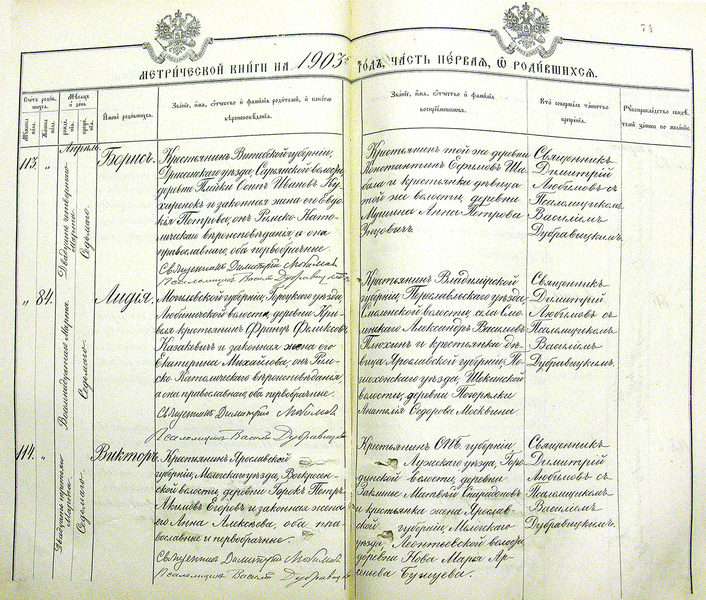 74
МЕТРИЧЕСКОЙ КНИГИ НА 1903й ГОДЪ, ЧАСТЬ ПЕРВАЯ, Ѡ РОДИВШИХСЯ.
Счетъ родившихся.
Мужеска пола.
Женска пола.
Мѣсяцъ и день
рожденія.
крещенія.
Имена родившихся.
Званіе, имя, отчество и фамилія родителей, и какого
вѣроисповѣданія.
Званіе, имя, отчество и фамилія
воспріемниковъ.
Кто совершалъ таинство
крещенія.
Рукоприкладство свидѣтелей записи по желанію.
113.
"
Апрѣль.
Двадцать четвертаго Марта.
Седьмаго.
Борисъ.
Крестьянинъ Витебской губерніи,
Дриссенскаго уѣзда, Сарьянской волости,
деревни Осипъ Ивановъ
и законная жена его
Петрова, онъ Римско-Като-
лическаго вѣроисповѣданія, а она
православнаго, оба первобрачные.
Священникъ Димитрій Любимовъ
Псаломщикъ Василій Дубравицкій
Крестьянинъ той же деревни
Константинъ Ефимовъ
и крестьянка дѣвица
той же волости, деревни
Анна Петрова
Священникъ
Димитрій
Любимовъ съ
Псаломщикомъ
Василіемъ
Дубравицкимъ.
"
84.
Восемнадцатаго Марта.
Седьмаго.
Лидія.
Могилевской губерніи, Горецкаго уѣзда,
волости, деревни
крестьянинъ Францъ
Казакевичъ и законная жена его
Екатерина Михайлова, онъ Рим-
ско-Католическаго вѣроисповѣданія,
а она православнаго, оба первобрачные.
Священникъ Димитрій Любимовъ
Псаломщикъ Василій Дубравицкій
Крестьянинъ Владимірской
губерніи, Переславльскаго уѣзда,
Смоленской волости, села Смо-
ленскаго Александръ Васильевъ
Плохинъ и крестьянка дѣ-
вица Ярославской губерніи, По-
шехонскаго уѣзда,
волости, деревни
Анатолія Сидорова Москвина
Священникъ
Димитрій
Любимовъ съ
Псаломщикомъ
Василіемъ
Дубравицкимъ.
114.
"
Двадцать Марта.
Седьмаго.
Викторъ.
Крестьянинъ Ярославской
губерніи, Мологскаго уѣзда, Воскресен-
ской волости, деревни Горокъ Петръ
Егоровъ и законная жена
его Анна Алексѣева, оба пра-
вославные и первобрачные.
Священникъ Димитрій Любимовъ
Псаломщикъ Василій Дубравицкій
Крестьянинъ СПБ. губерніи,
Лужскаго уѣзда, Горо-
динской волости, деревни
Заклинье Матвѣй Спиридоновъ
и крестьянка жена Ярослав-
ской губерніи, Мологскаго
уѣзда, Леонтьевской волости,
деревни Нова Марья Ар-
сеньева Бунцева.
Священникъ
Димитрій
Любимовъ съ
Псаломщикомъ
Василіемъ
Дубравицкимъ.